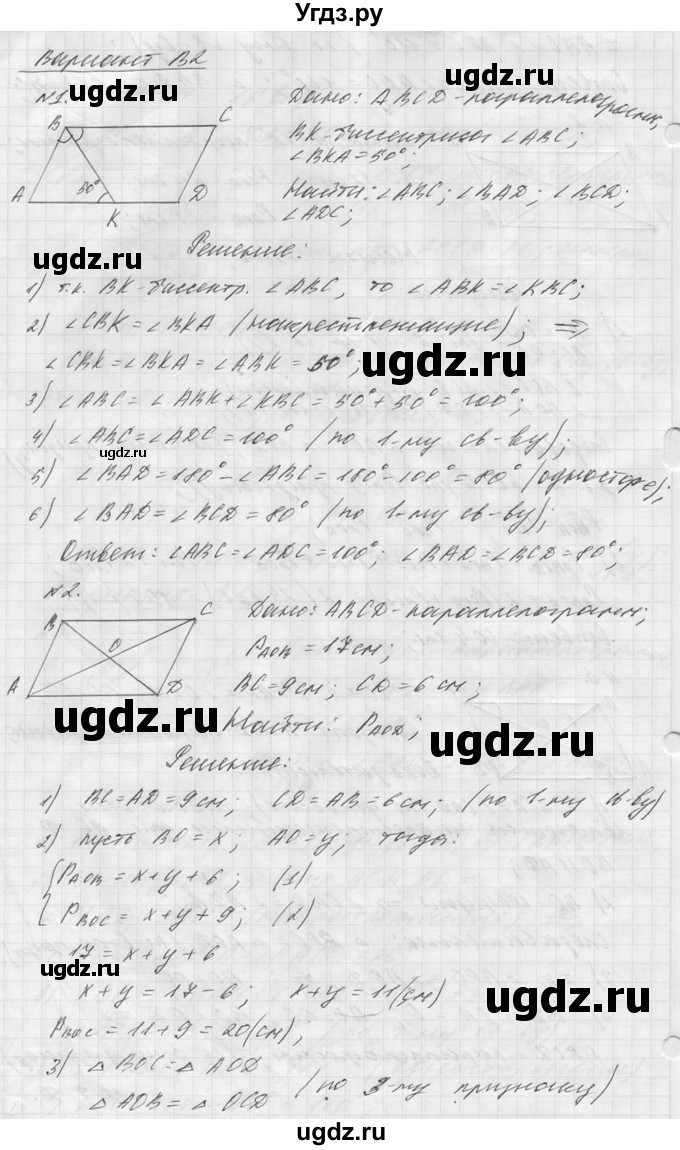 Угдз.ру
Вариант В2
№1.
Дано: ABCD - параллелограмм,
BK - биссектриса ∠ABC;
∠BKA = 50°;
Найти: ∠ABC; ∠BAD; ∠BCD;
∠ADC;
B C
A 50° K D
Решение:
1) т.к. BK - биссектр. ∠ABC, то ∠ABK = ∠KBC;
2) ∠CBK = ∠BKA (накрестлежащие); ⇒
∠CBK = ∠BKA = ∠ABK = 50°;
3) ∠ABC = ∠ABK + ∠KBC = 50° + 50° = 100°;
4) ∠ABC = ∠ADC = 100° (по 1-му св-ву);
5) ∠BAD = 180° - ∠ABC = 180° - 100° = 80° (одностор.);
6) ∠BAD = ∠BCD = 80° (по 1-му св-ву);
Ответ: ∠ABC = ∠ADC = 100°; ∠BAD = ∠BCD = 80°;
№2.
Дано: ABCD - параллелограмм;
PAOB = 17см;
BC = 9см; CD = 6см;
Найти: PAOD;
B C
O
A D
Решение:
1) BC = AD = 9см; CD = AB = 6см; (по 1-му св-ву)
2) пусть BO = x; AO = y; тогда:
{ PAOB = x + y + 6; (1)
PBOC = x + y + 9; (2)
17 = x + y + 6
x + y = 17 - 6; x + y = 11 (см)
PBOC = 11 + 9 = 20 (см);
3) △BOC = △AOD
△AOB = △OCD (по 3-му признаку)
ugdz.ru
ugdz.ru
ugdz.ru
ugdz.ru
ugdz.ru
ugdz.ru
ugdz.ru
ugdz.ru
ugdz.ru
ugdz.ru
ugdz.ru
ugdz.ru